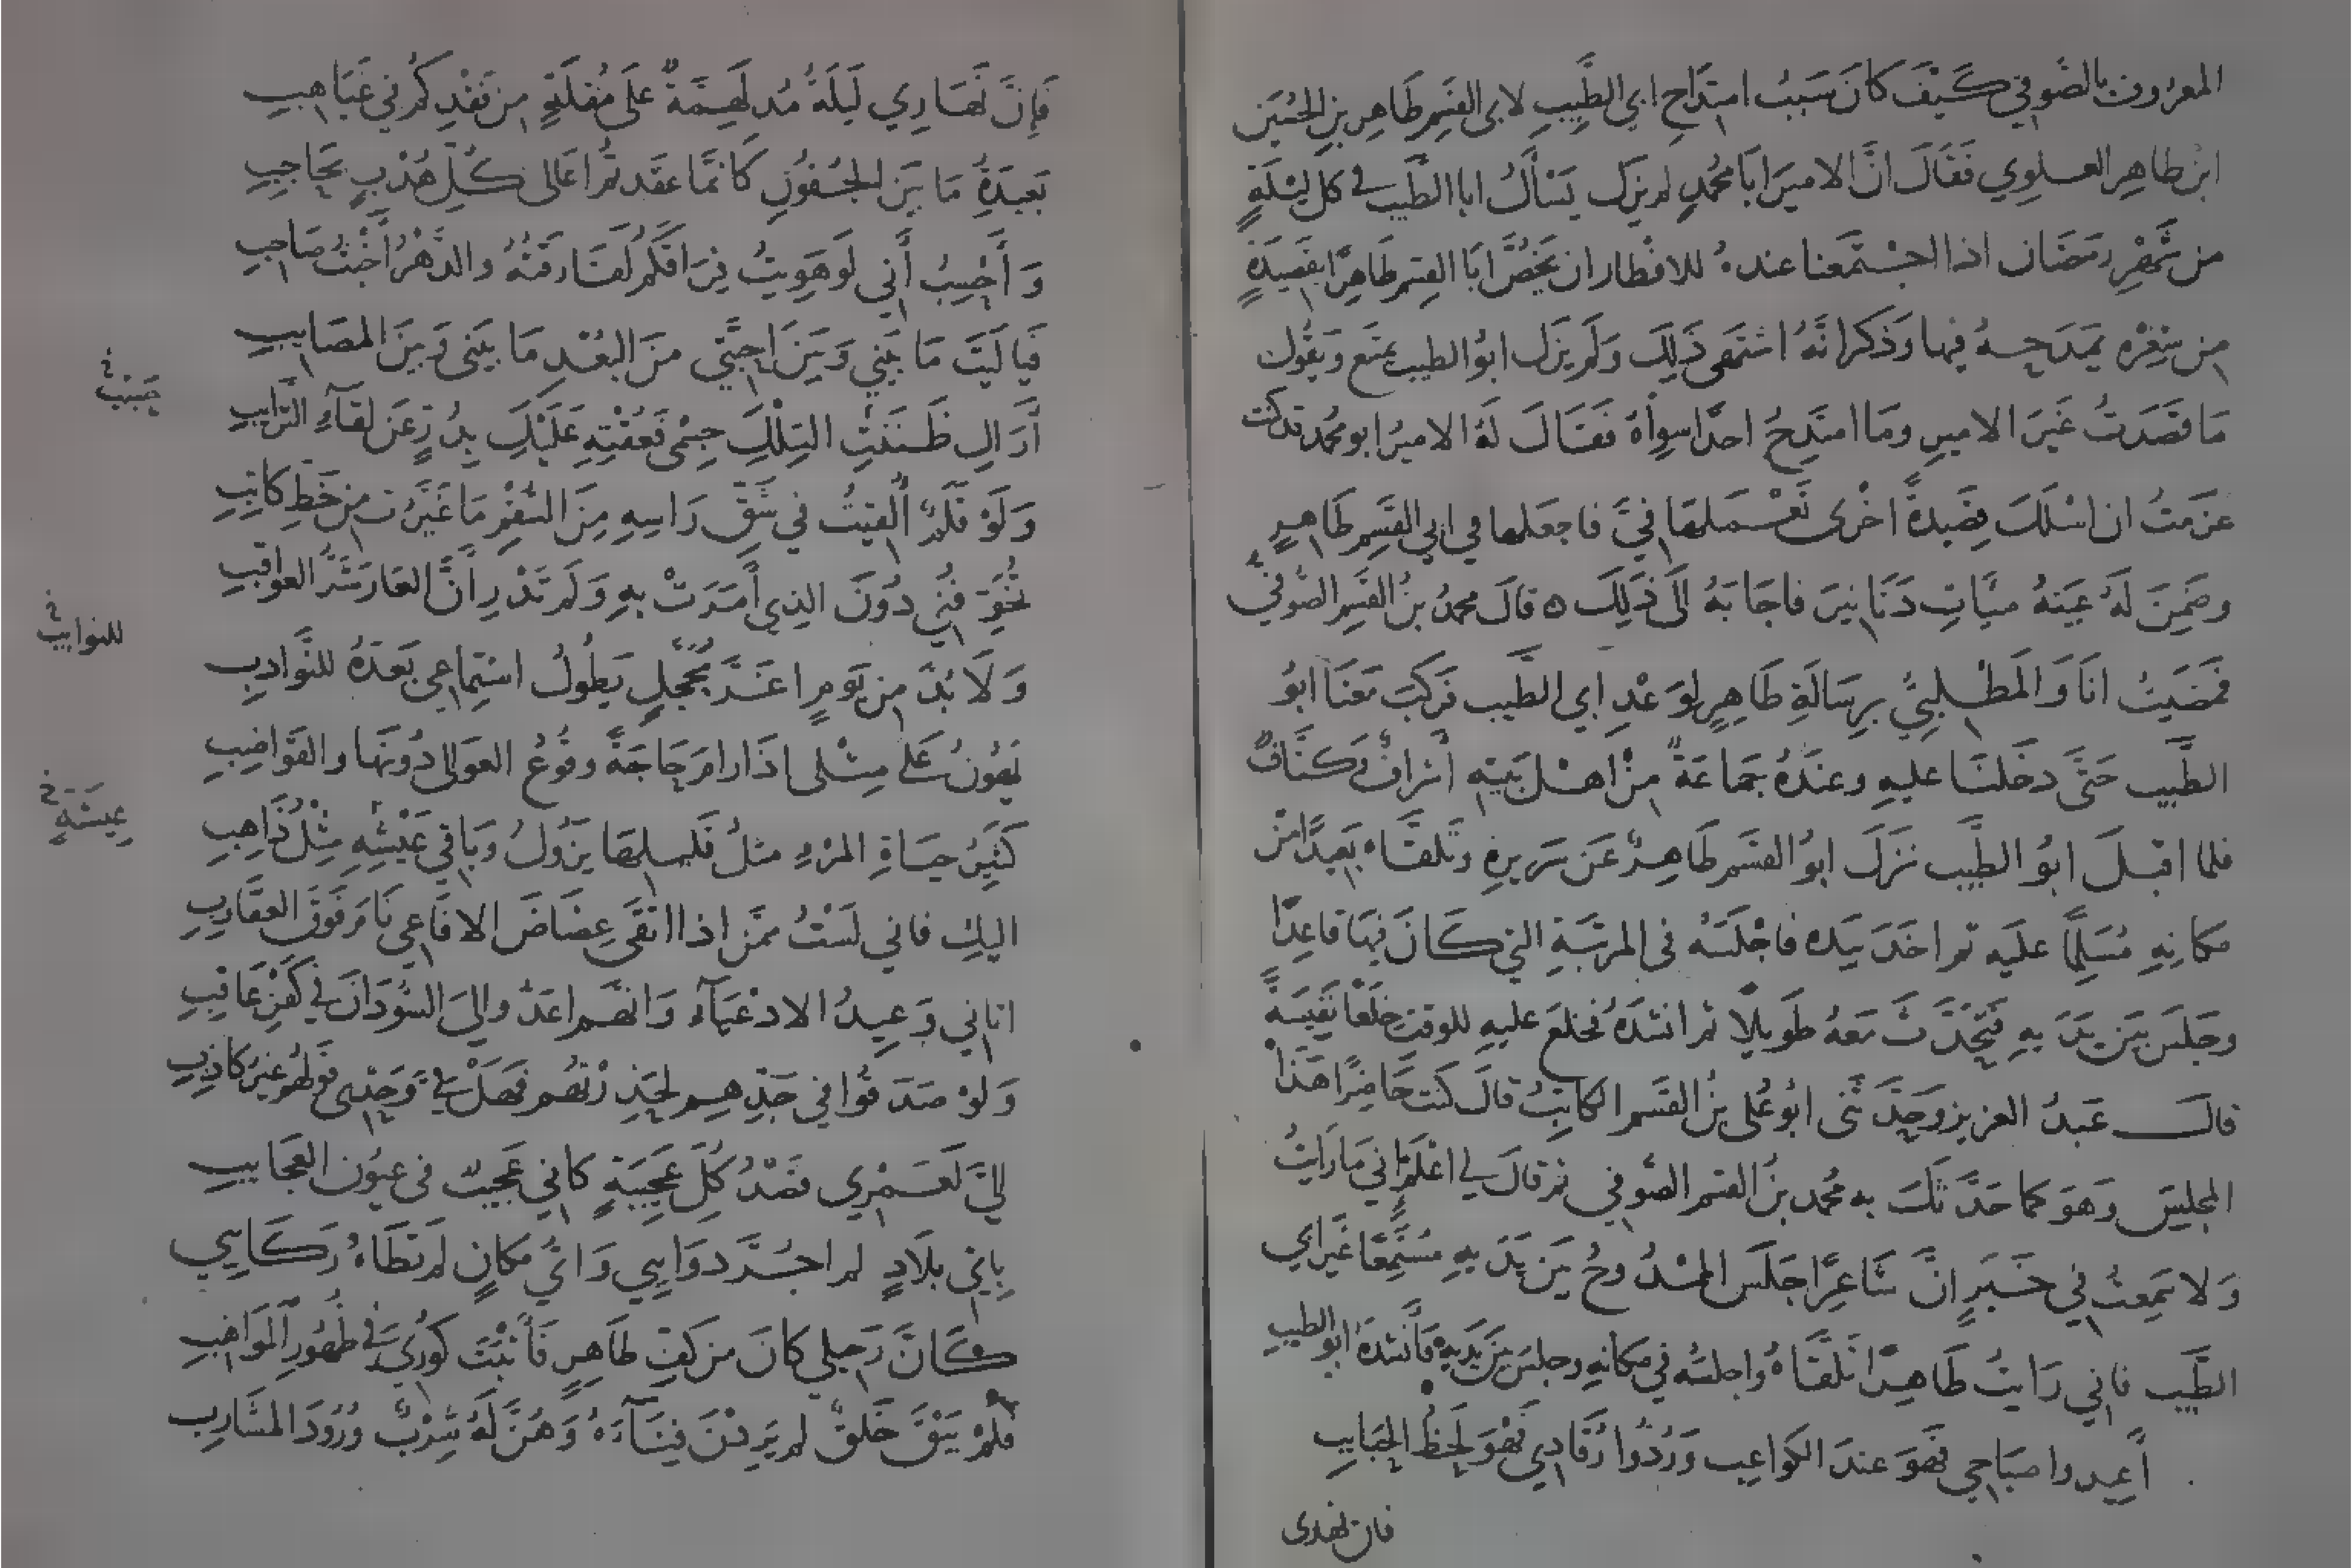 المعروف بالصُّوفي كَيْفَ كانَ سَبَبُ امتِدَاحِ ابي الطَّيِبِ لابى القسِم طَاهِر بنِ الحُسَين
ابن طاهِر العلوي فَقَالَ انَّ الاميرَ ابَا مُحمدٍ لم يَزَل يَسْأَلُ ابا الطَّيِّب في كل ليْلَةٍ
من شَهْرِ رمَضَان اذا اجْتمَعنا عندهُ للافطار ان يَخُصَّ ابَا القسِم طَاهِرًا بقَصِيدَةٍ
مِن شِعْرِه يَمدَحهُ فيها وَذَكَرَ انَّهُ اشتَهَى ذَلِكَ وَلَم يَزَل ابوُ الطيب يمتنع وَيَقُول
مَا قَصَدتُ غَيرَ الامير وَمَا امتَدِحُ احدًا سِواهُ فَقَالَ لَهُ الاميرُ ابو محُمد قد كنت
عَزَمتُ ان اسْئلكَ قصِيدةً اخرى تَعْمَلها فيَّ فاجعَلها في ابي القسِم طَاهِرٍ
وضَمِنَ لَهُ عَنهُ مِيَّاتِ دَنَانِيرَ فاجَابَهُ الَى ذَلِكَ ه قالَ محمدُ بنُ القسِم الصُّوفيُّ
فمَضَيتُ انَا وَالمَطْلِبِيُّ بِرِسَالَةِ طَاهِرٍ لِوَعْدِ ابي الطَّيب فَرَكبَ مَعَنَا ابوُ
الطَّيِّب حَتَّى دخَلنَا عليهِ وعندَهُ جمَاعَةٌ مِنْ اهْل بَيتِهِ أشرافٌ وَكتَّابٌ
فلما اقبَلَ ابوُ الطَّيِب نَزَلَ ابوُ القسم طَاهِرٌ عَن سَرِيرِهِ وتَلقَّاه بَعِيدًا مِنْ
مكانِهِ مُسَلِّمًا علَيهِ ثم اخَذَ بيَدِه فاجْلَسَهُ في المرتَبَةِ التي كَانَ فيهَا قاعِدًا
وجَلسَ بَينَ يَدَيهِ فَتَحَدَّثَ مَعَهُ طَويلًا ثم انشَدَهُ فخلعَ عليهِ للوقت خِلعًا نَفِيسَةً
قالَ عَبدُ العزيز وحَدَّثَني ابوُ علي بنُ القسم الكاتبُ قالَ كنت حَاضِرًا هَذا
المجلِسَ وَهوَ كما حَدَّثَكَ به محُمد بنُ القسم الصُّوفي ثم قالَ لي اعْلَم اني مَا رَايتُ
وَلا سَمِعتُ في خَبرٍ انَّ شَاعِرًا جَلَسَ المَمْدُوحُ بَينَ يَدَيهِ مُستَمِعًا غَيرَ ابي
الطَّيب فاني رَايتُ طَاهِرًا تَلَقَّاهُ واجلسَهُ في مكانِهِ وجلسَ بَينَ يَدَيهِ فأنشدَهُ ابو الطيب
أَعِيدوا صبَاحِي فَهوَ عندَ الكواعِبِ وَرُدُّوا رُقَادِي فَهْوَ لَحظُ الحَبَايِبِ
فان نهارى
فَإِنَّ نَهَارِي لَيلَةٌ مُدلَهِمَّةٌ عَلَى مُقلَةٍ مِن فَقْدِكُم في غَيَاهِبِ
بَعِيدَةِ مَا بَينَ الجُفُونِ كَانَمَّا عَقَدتُم اعَالى كُلّ هُدْبٍ بحَاجِبِ
وَأَحْسِبُ أَنِّي لَو هَوِيتُ فِرَاقَكُم لفَارَقتُهُ والدَّهْرُ أَخْبَثُ صَاحِبِ
فَيا ليَتَ مَا بَيْني وَبَينَ احِبَّتي منَ البُعْدِ مَا بَيني وَبَينَ المصَايبِ
حَبَبْ خ
أَرَاكِ ظَنَنْتِ السِّلكَ جِسْمي فَعُقْتِهِ عَلَيْكِ بِدُرٍّ عَن لقَآءِ التَّرايبِ
وَلَوْ قَلَمٌ أُلقيتُ في شَقِّ رَاسِهِ مِنَ السُّقْمِ مَا غَيَّرت من خَطِّ كاتِبِ
تُخَوّفُني دُونَ الذِي أَمَرَتْ بهِ وَلَم تَدْرِ أَنَّ العَارَ شَرُّ العواقِبِ
للنوايب خ
وَلَا بُدَّ مِن يَومٍ اغَرَّ مُحَجَّلٍ يَطُولُ استِماعِي بَعدَهُ للنَّوادِبِ
يَهُونُ عَلَى مِثْلي اذَا رامَ حَاجَةً وقُوعُ العوَالي دُونَهَا والقَواضِبِ
عِيشَةٍ خ
كَثيرُ حيَاةِ المرْءِ مثلُ قَلِيلهَا يَزُولُ وَبَاقِي عَيْشِهِ مِثْلُ ذَاهِبِ
اليكِ فاني لَسْتُ ممَّن اذا اتقَى عِضَاضَ الافَاعِي نَامَ فَوقَ العقَاربِ
اتاني وَعِيدُ الادْعيَآءِ وَانَّهم اعَدُّوا ليَ السُّودَانَ في كَفْرِ عَاقِبِ
وَلَوْ صَدَقُوا في جَدِّهِم لحَذِرْتُهُم فَهَلْ فيَّ وَحْدِي قَولهُم غَيرُ كاذِبِ
اليَّ لَعَمْرِي قَصْدُ كُلِّ عَجِيبَةٍ كاني عَجِيبٌ في عيُون العَجَايبِ
بِايِّ بلَادٍ لم اجُرَّ دوَايبي وَايُّ مَكانٍ لم تَطَأهُ رَكَايِبي
كَانَّ رَحيلي كانَ من كَفِّ طَاهِرٍ فَأَثْبَتَ كُورِي في ظُهُورِ المَوَاهِبِ
فلَمْ يَبْقَ خَلقٌ لم يَرِدْنَ فِنَآءَهُ وَهُنَّ لَهُ شِرْبٌ وُرُودَ المَشَارِبِ